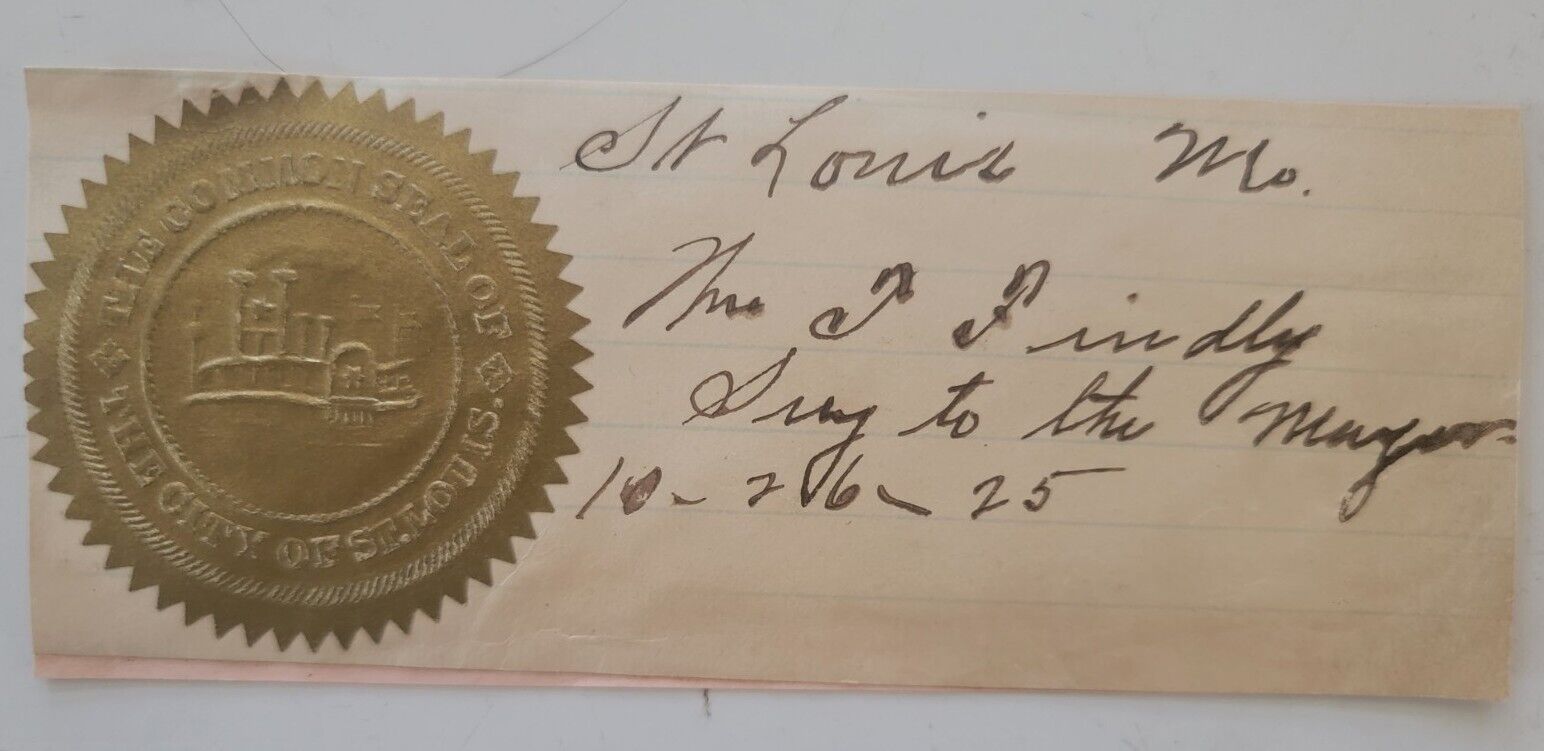 THE COMMON SEAL OF
THE CITY OF ST. LOUIS.
St Louis Mo.
Wm T Findly
Secy to the Mayor
10-26-25